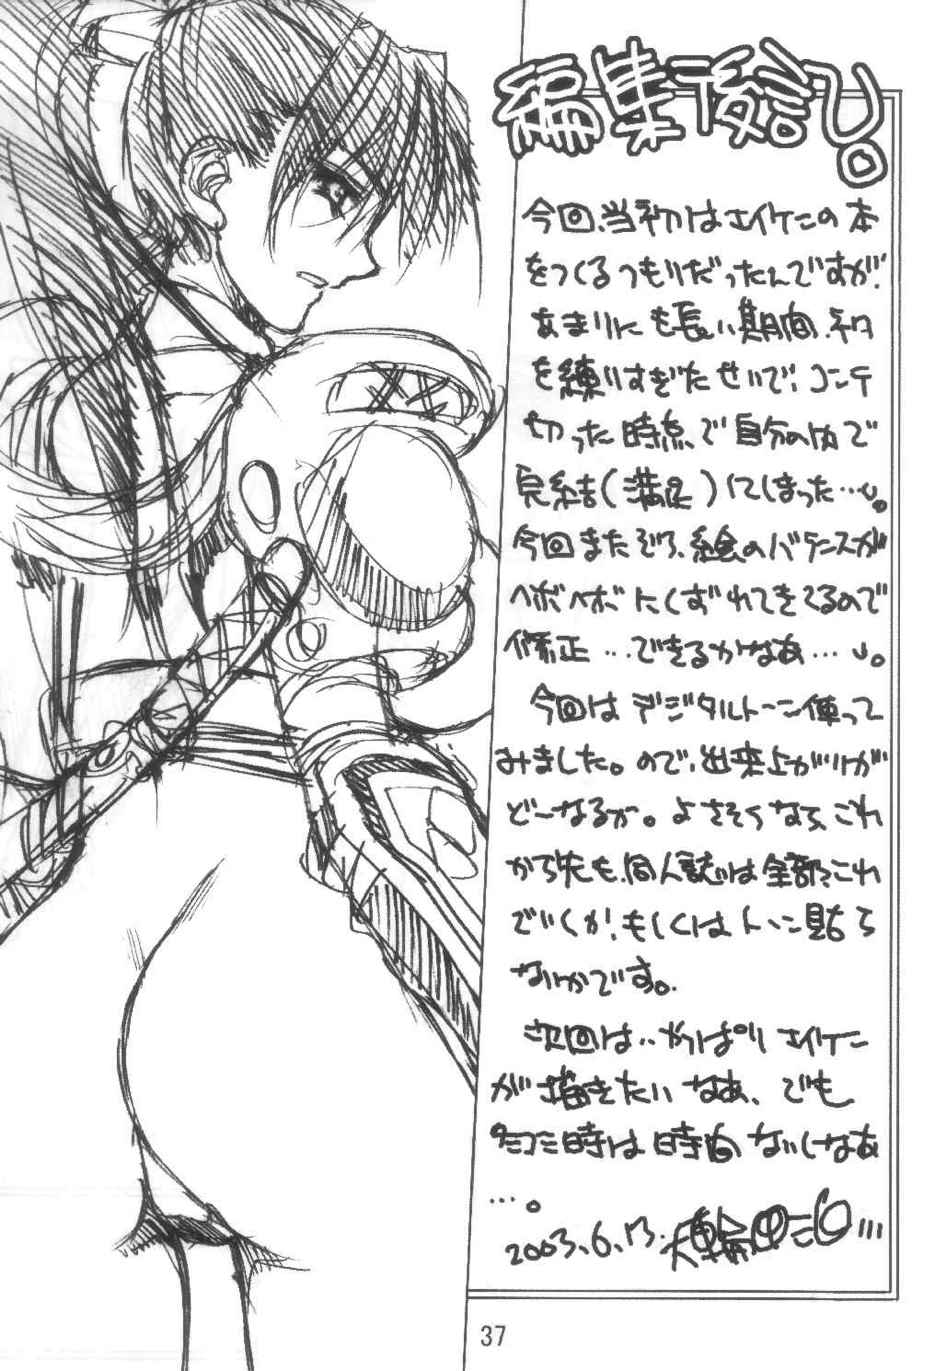 編集後記
今回、当初はエイケンの本
をつくるつもりだったんですが、
あまりにも長い期間、ネタ
を練りすぎたせいで、コンテ
切った時点で自分の内で
完結(満足)してしまった…。
今回またぞろ、絵のバランスが
ヘボヘボにくずれてきてるので
修正…できるかなあ…。
今回はデジタルトーン使って
みました。ので、出来上がりが
どーなるか。よさそうなら、これ
から先も、同人誌は全部、これ
でいくか、もしくはトーン貼ら
ないかです。
次回は‥やっぱりエイケン
が描きたいなあ、でも
時は時間ないしなあ
…。
2003.6.13.
37